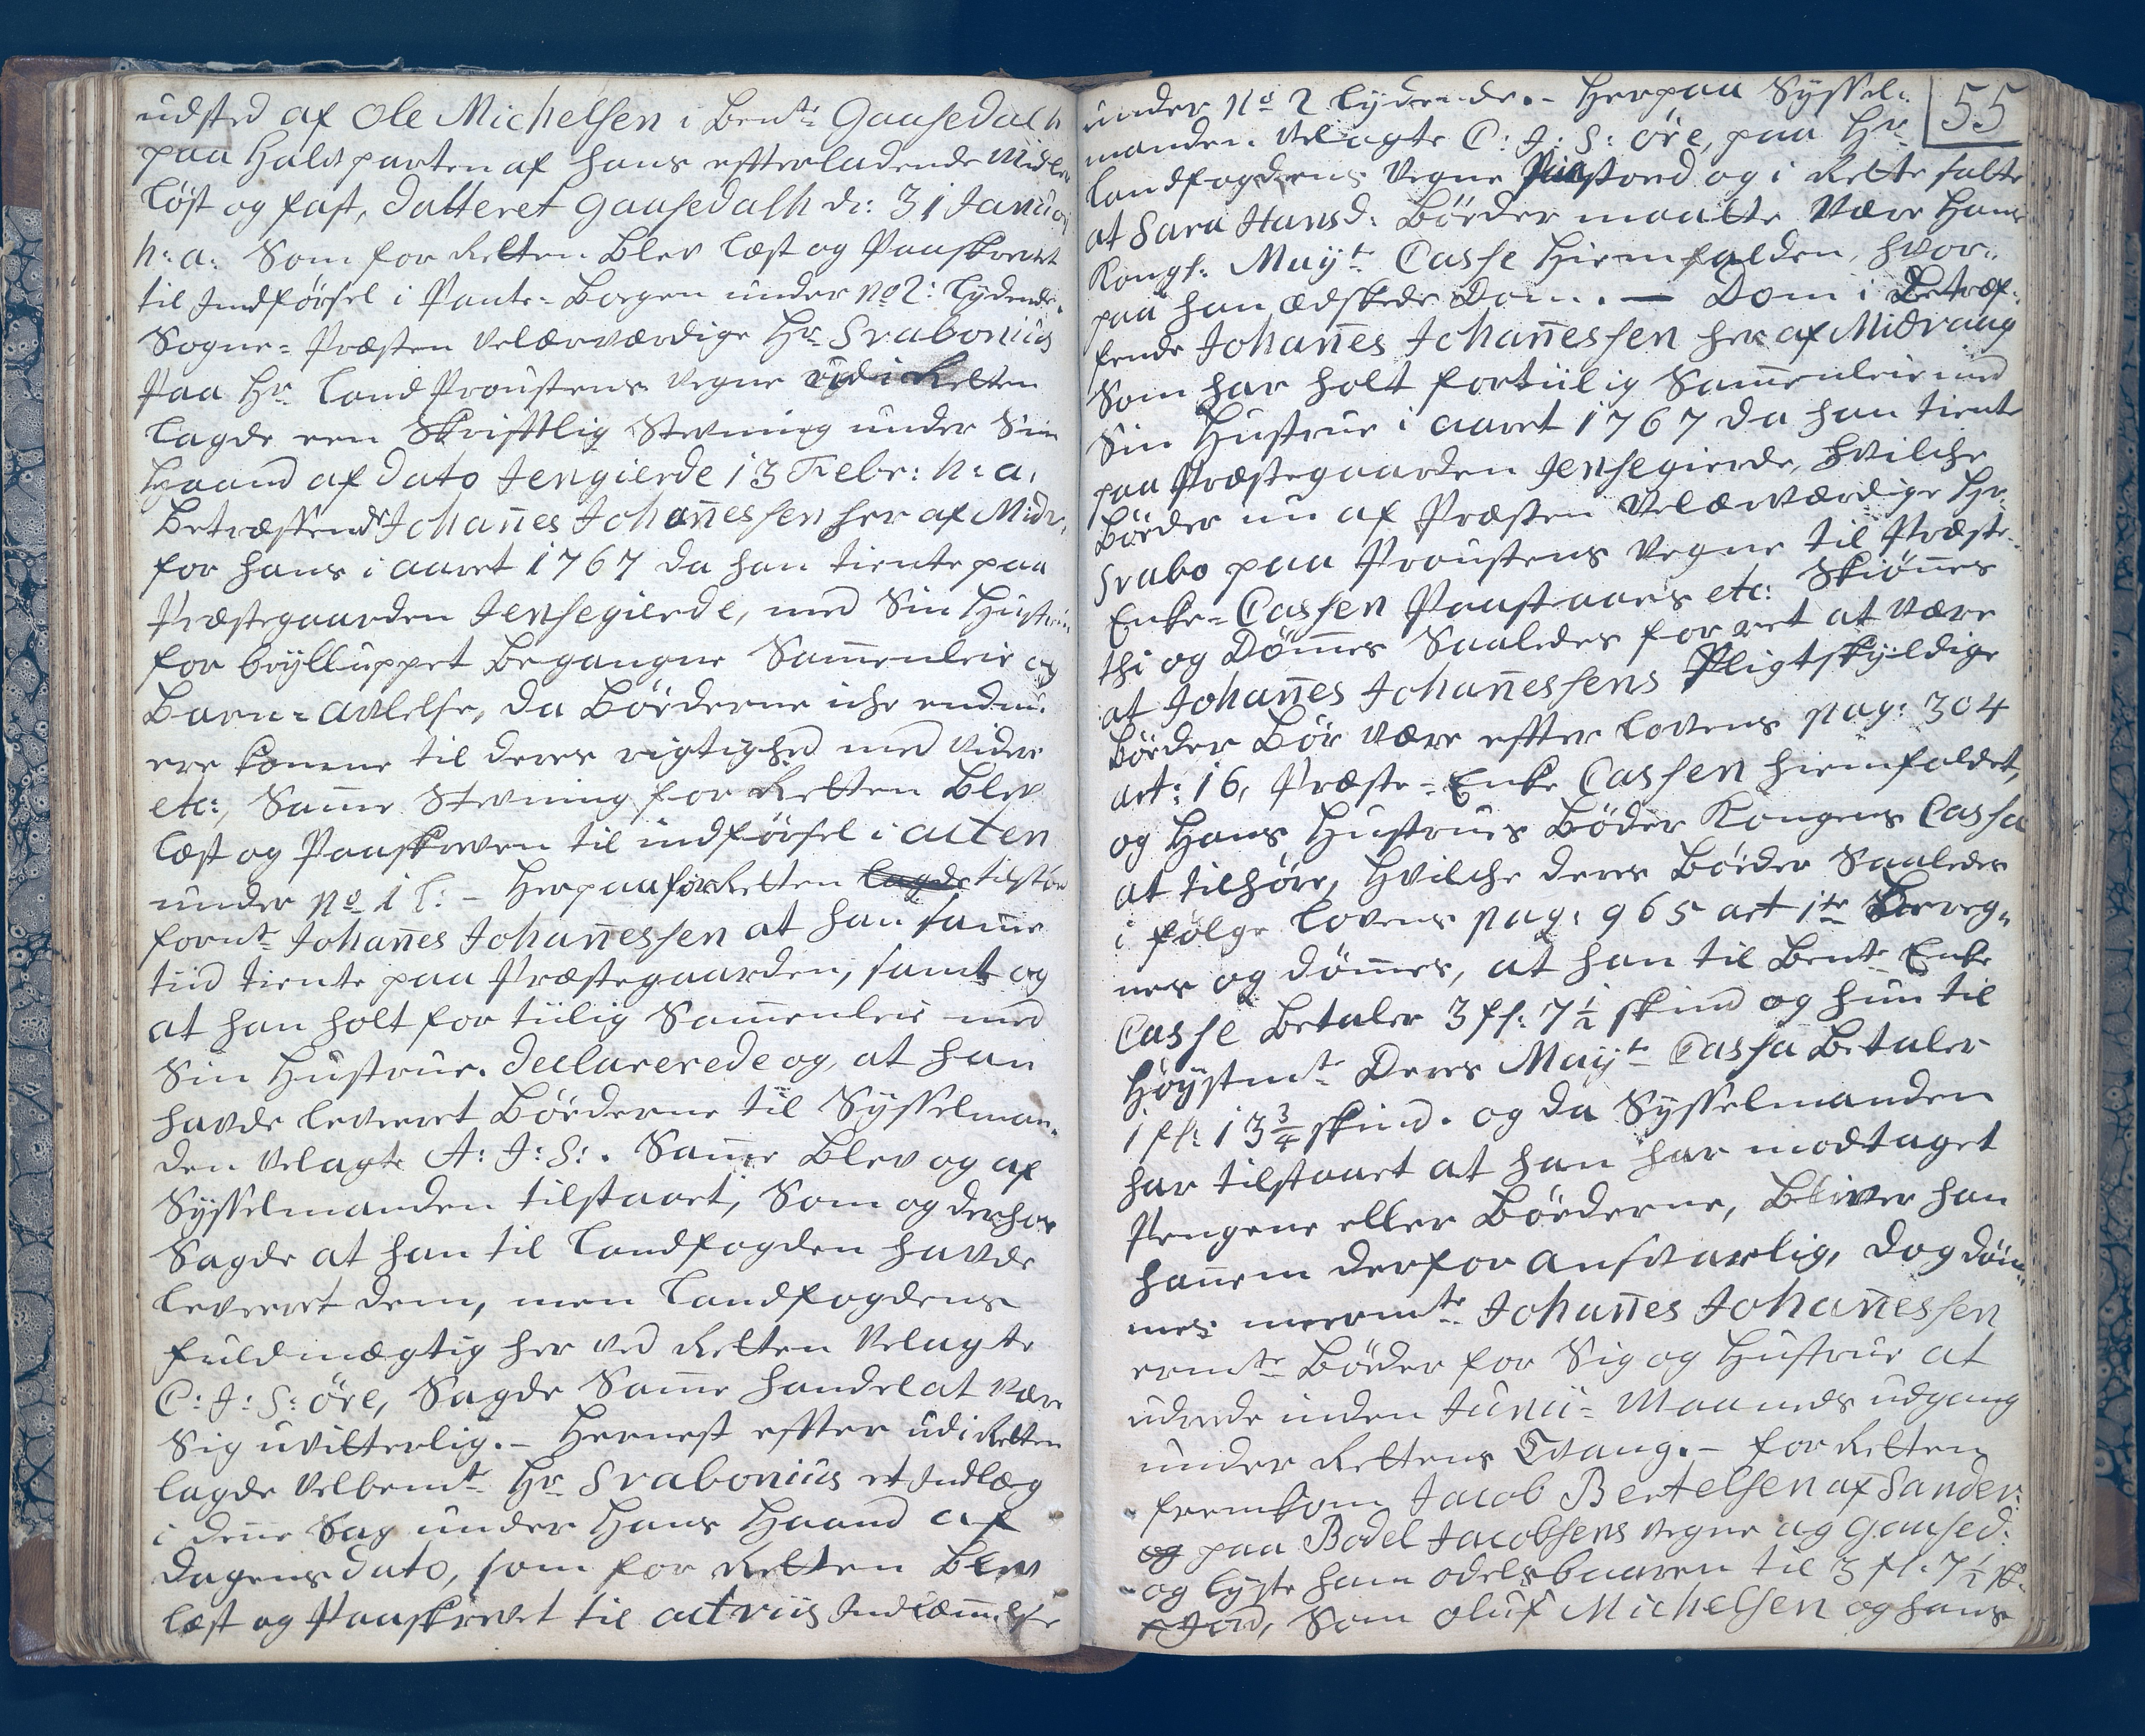 udsted af Ole Michelsen i Bemte Gaasedalh
paa Haldparten af hans effterladende Midler
løst og fast, datteret Gaasedalh d: 31 Januarj
h: a: Som for Retten blev læst og Paaskrevet
til Indførsel i Pante-Bogen under No 2: lydende.
Sogne-Præsten Velærværdige Hr Svabonius
Paa Hr Land Proustens Vegne udi Retten
lagde een Skrifttlig Stevning under Sin
Haand af dato Jengierde 13 Febr: h: a:
Betræffende Johan̄es Johan̄essen her af Midv:
for hans i aaret 1767 da han tiente paa
Præstegaarden Jensegierde, med Sin Hustru
for brylluppet begangne Sam̄enleie og
Barn-Avlelse, da Bøderne iche endnu
ere kom̄ne til deres rigtighed med videre
etc:, Sam̄e Stevning for Retten blev
læst og Paaskreven til indførsel i acten
under No 1 l: - Herpaa for Retten lagde tilstod
fornte Johan̄es Johan̄essen at han sam̄e
tiid tiente paa Præstegaarden, samt og
at han holt for tiilig Sam̄enleie med
Sin Hustrue. declarerede og, at han
havde leveret Bøderne til Sysselman-
den Velagte A: J: S:. Sam̄e blev og af
Sysselmanden tilstaaet, Som og derhos
Sagde at han til Landfogden havde
leveret dem, men Landfogdens
fuldmægtig her ved Retten Velagte
C: J: S: Øre, Sagde Sam̄e handel at være
Sig uvitterlig. - Hernest effter udi Retten
lagde Velbemte Hr Svabonius et Indlæg
i den̄e Sag under Hans Haand af
dagens dato, som for Retten blev
læst og Paaskrevet til actriis Indlæm̄else
55
under No 2 lydende. - Herpaa Syssel-
manden Velagte C: J: S: Øre, paa Hr
Landfogdens Vegne Paastoed og i Rette satte
at Sara Hansd: Bøeder maatte Være Hans
Kongl: Mayts Casse Hiemfalden, hvor-
paa han ædskede Dom. — Dom i Betræf-
fende Johan̄es Johan̄essen her af Midvaag
Som har holt fortiilig Sam̄enleie med
Sin Hustrue i aaret 1767 da han tiente
paa Præstegaarden Jensegierde, hvilche
Bøeder nu af Præsten Velærværdige Hr
Svabo paa Proustens Vegne til Præste-
Enke-Cassen Paastaaes etc: Skiøn̄es
thi og Døm̄es Saaledes for ret at være
at Johan̄es Johan̄essens Pligtskyldige
Bøeder Bør være effter Lovens pag: 304
art: 16, Præste-Enke Cassen hiemfaldet,
og Hans Hustrues Bøder Kongens Cassa
at tilhøre, Hvilche deres Bøeder Saaledes
i følge Lovens pag: 965 art 1te Bereg-
nes og døm̄es, at han til Bemte Enke
Casse betaler 3 fl: 7½ skind og hun til
Høystmte Deres Mayts Cassa betaler
1 fl: 13¾ skind. og da Sysselmanden
har tilstaaet at han har modtaget
Pengene eller Bøederne, bliver han
han̄em derfor ansvarlig, dog døm-
mes meermte Johan̄es Johan̄essen
ermte Bøder for Sig og Hustrue at
udrede inden Junii-Maaneds udgang
under Rettens Tvang. - for Retten
fremkom Jacob Bertelsen af Sander:
og paa Bodel Jacobsens Vegne ag Gaased:
og lyste ham odelsbaaren til 3 fl: 7½ sk:
Jord, Som Oluf Michelsen og hans